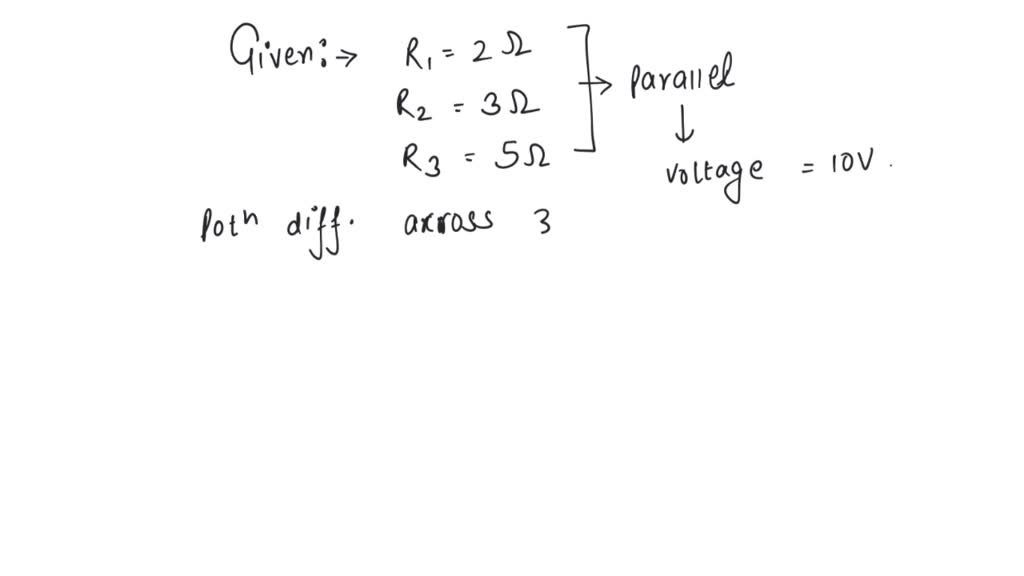 Given:→ R1 = 2 Ω
R2 = 3Ω
R3 = 5Ω
→ parallel
↓
voltage = 10V.
Potn diff. axross 3